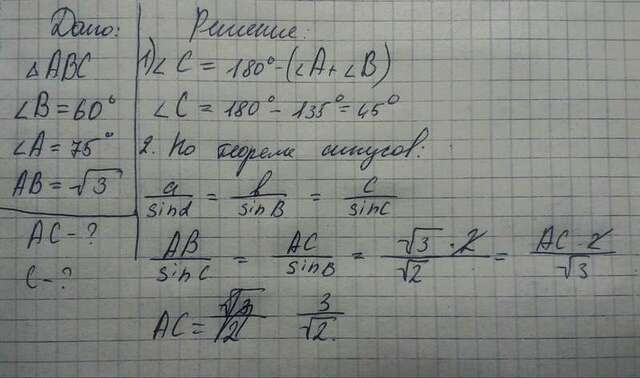 Дано:
△ABC
∠B = 60°
∠A = 75°
AB = √3
AC - ?
C - ?
Решение:
1) ∠C = 180° - (∠A + ∠B)
∠C = 180° - 135° = 45°
2. По теореме синусов:
a/sinα = b/sinB = c/sinC
AB/sinC = AC/sinB = √3 · 2/√2 = AC · 2/√3
AC = √3/2 3/√2.